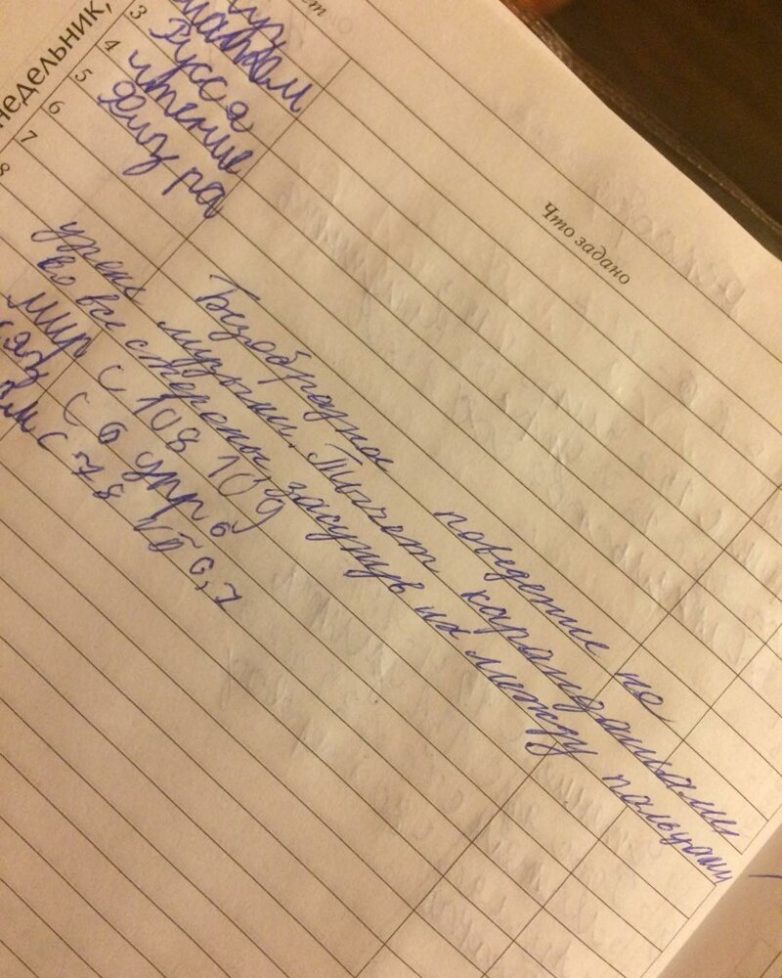 недельник,
3
4 матем
5 Русся
6 чтение
7 Физ ра
8
Что задано
Безобразное поведение на
уроке музыки. Тычет карандашами
во все стороны, засунув их между пальцами
мир с 108 109
с 6 упр 6
с 78 6,7